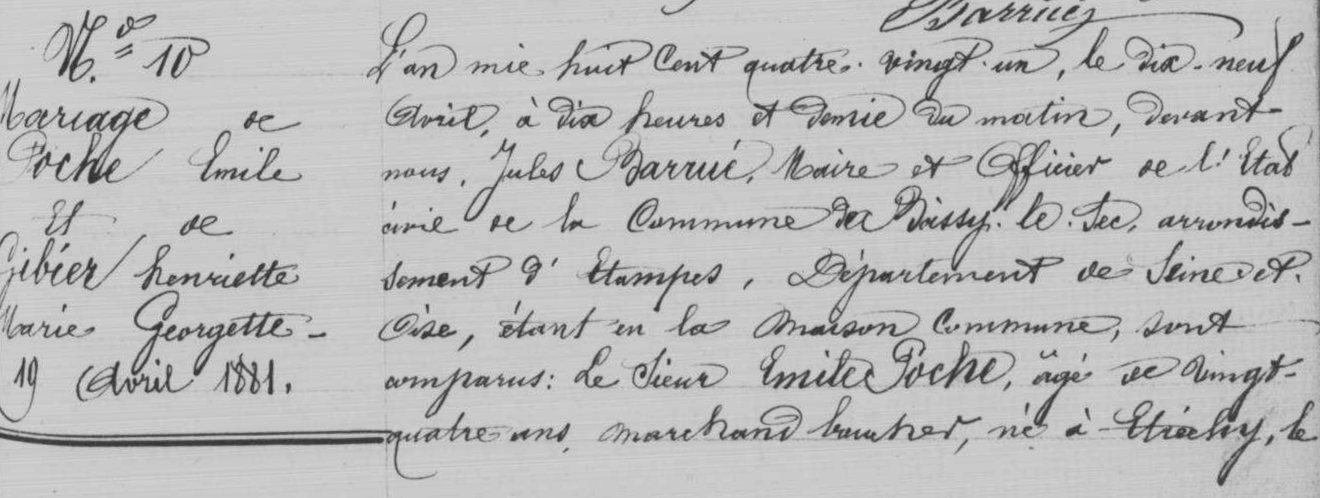 Barrué
N.o 10
Mariage de
Poche Emile
Et de
Gibier henriette
Marie Georgette -
19 Avril 1881.
L'an mil huit Cent quatre-vingt-un, le dix-neuf
Avril, à dix heures et demie du matin, devant
nous, Jules Barrué, Maire et Officier de l'Etat
civil de la Commune de Boissy-le-Sec, arrondis-
sement d'Etampes, Département de Seine et-
Oise, étant en la maison Commune, sont
comparus: Le Sieur Emile Poche, âgé de vingt-
quatre ans, marchand boucher, né à Etréchy, le